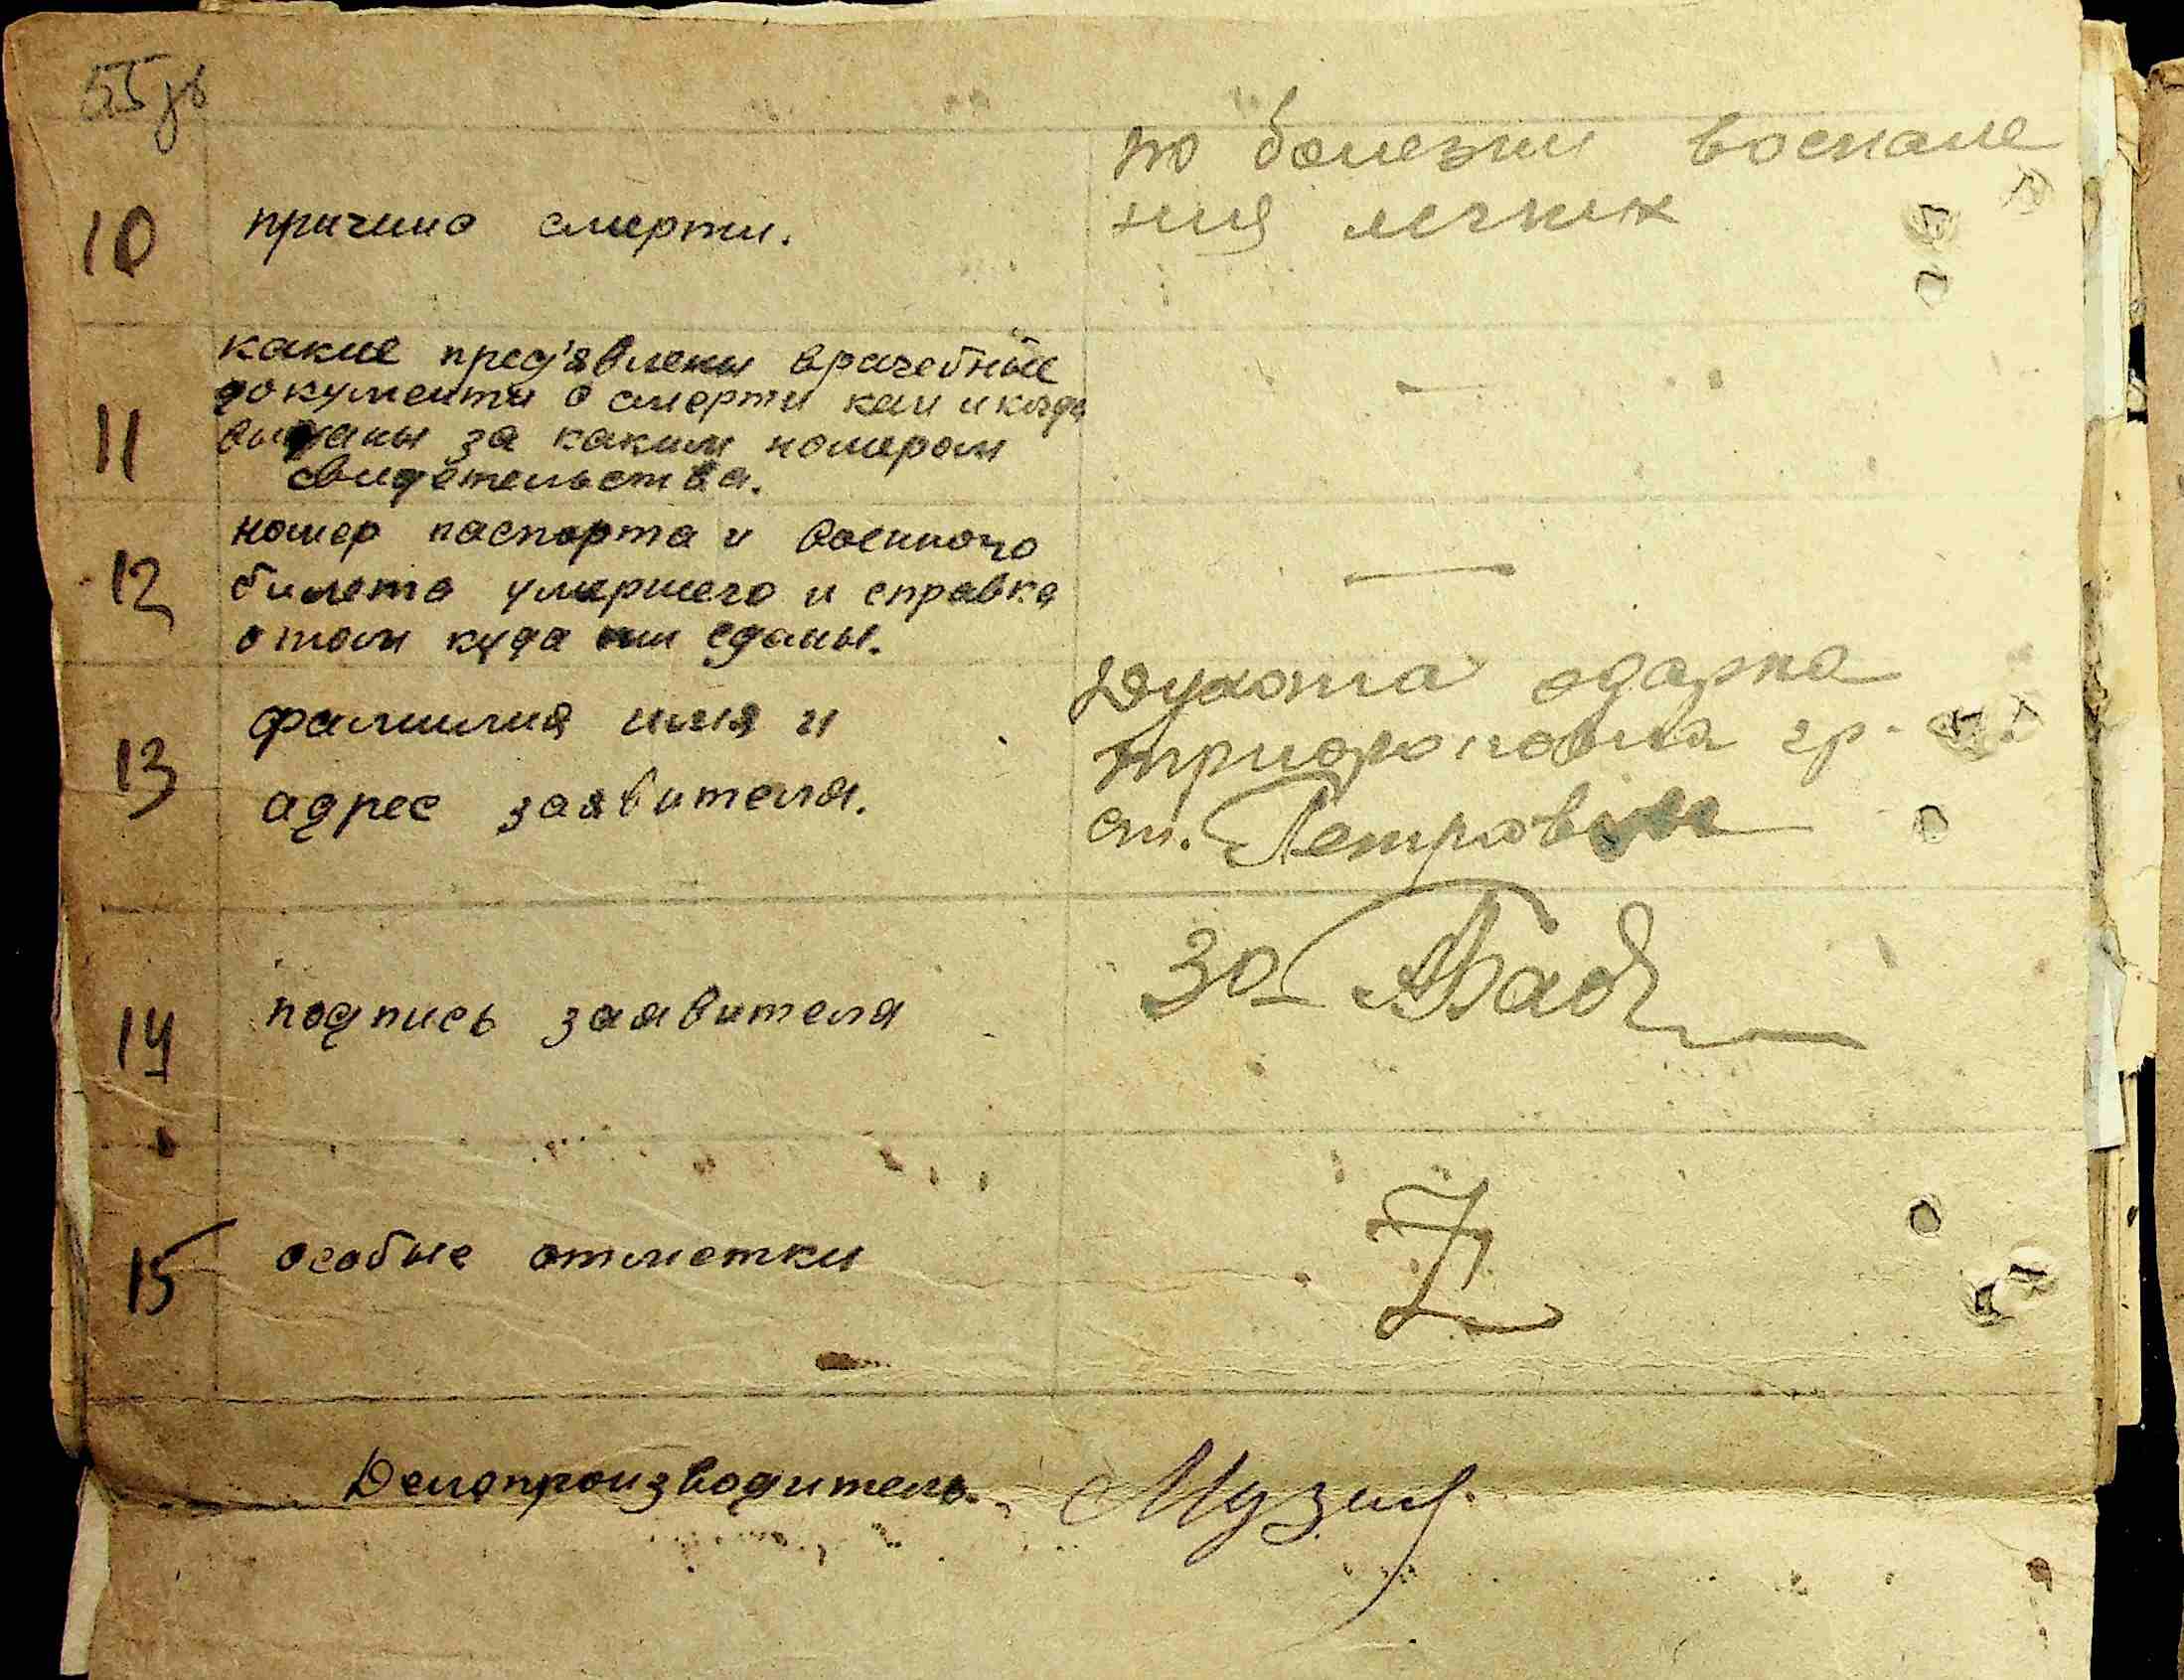 55 зв
по болезни воспале
10 причина смерти. ния легких
11 какие пред'явлены врачебные
документи о смерти кем и когда
выданы за каким номером
свидетельства.
12 номер паспорта и военного
билета умершего и справка
о том куда они сданы.
13 фамилия имя и
адрес заявителя.
Духота одарка
трифоновна гр.
ст. Петровка
14 подпись заявителя
За
15 особые отметки
Z
Делопроизводитель.